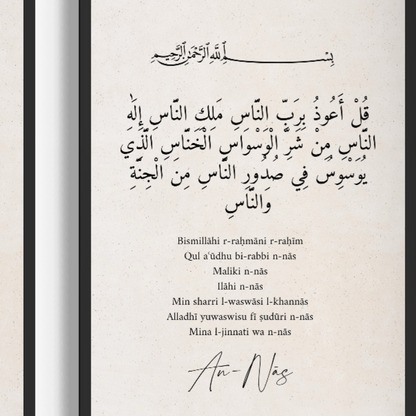 بِسْمِ ٱللَّهِ ٱلرَّحْمَٰنِ ٱلرَّحِيمِ
قُلْ أَعُوذُ بِرَبِّ النَّاسِ مَلِكِ النَّاسِ إِلَٰهِ
النَّاسِ مِنْ شَرِّ الْوَسْوَاسِ الْخَنَّاسِ الَّذِي
يُوَسْوِسُ فِي صُدُورِ النَّاسِ مِنَ الْجِنَّةِ
وَالنَّاسِ
Bismillāhi r-raḥmāni r-raḥīm
Qul a'ūdhu bi-rabbi n-nās
Maliki n-nās
Ilāhi n-nās
Min sharri l-waswāsi l-khannās
Alladhī yuwaswisu fī ṣudūri n-nās
Mina l-jinnati wa n-nās
An-Nās